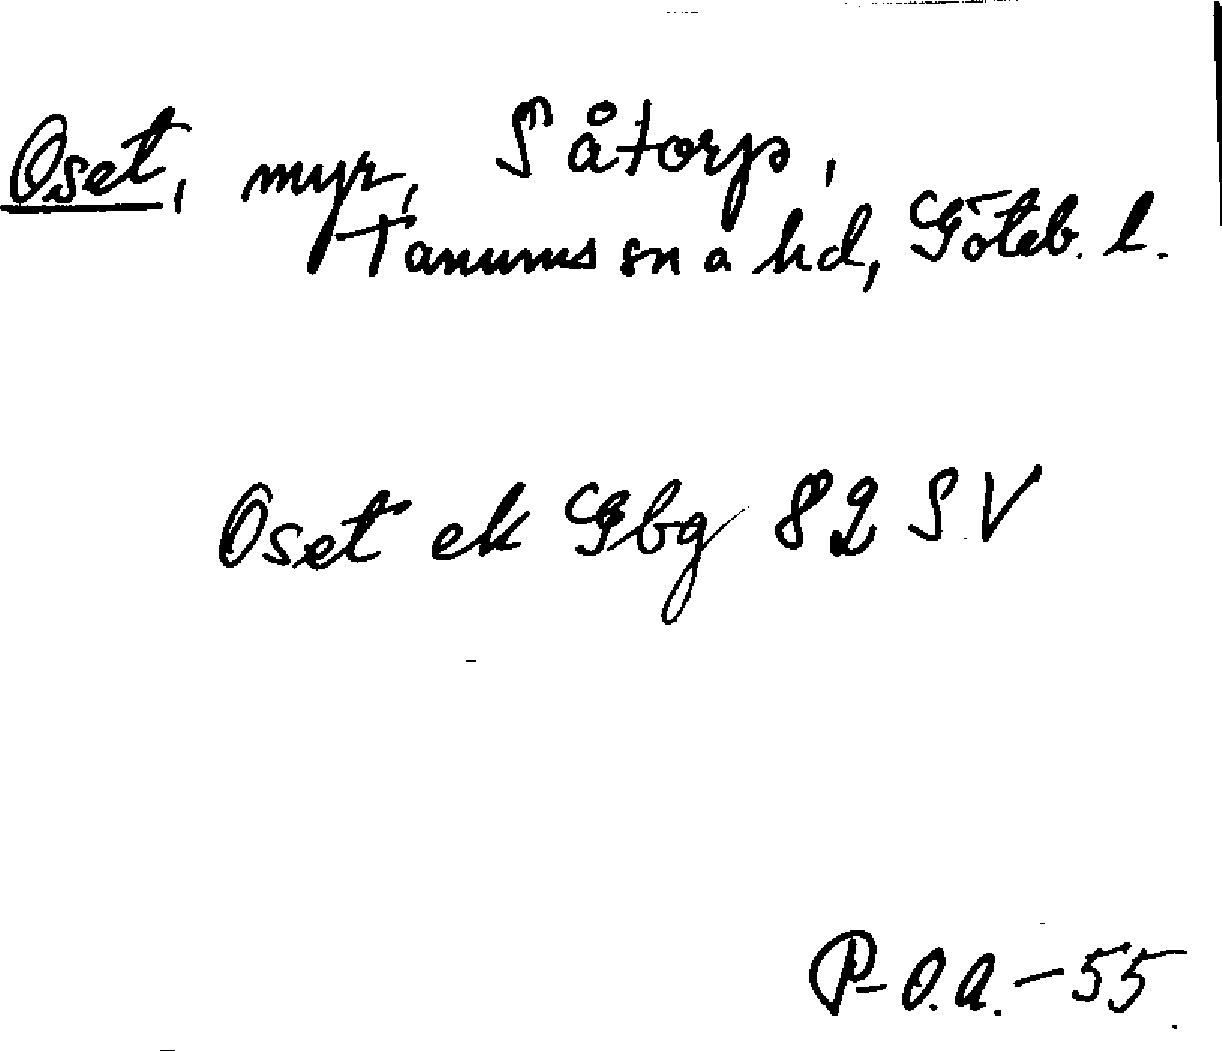 Oset, myr, Såtorp,
Tanums sn a hd, Göteb. l.
Oset ek Gbg 82 SV
P-O.A.-55.